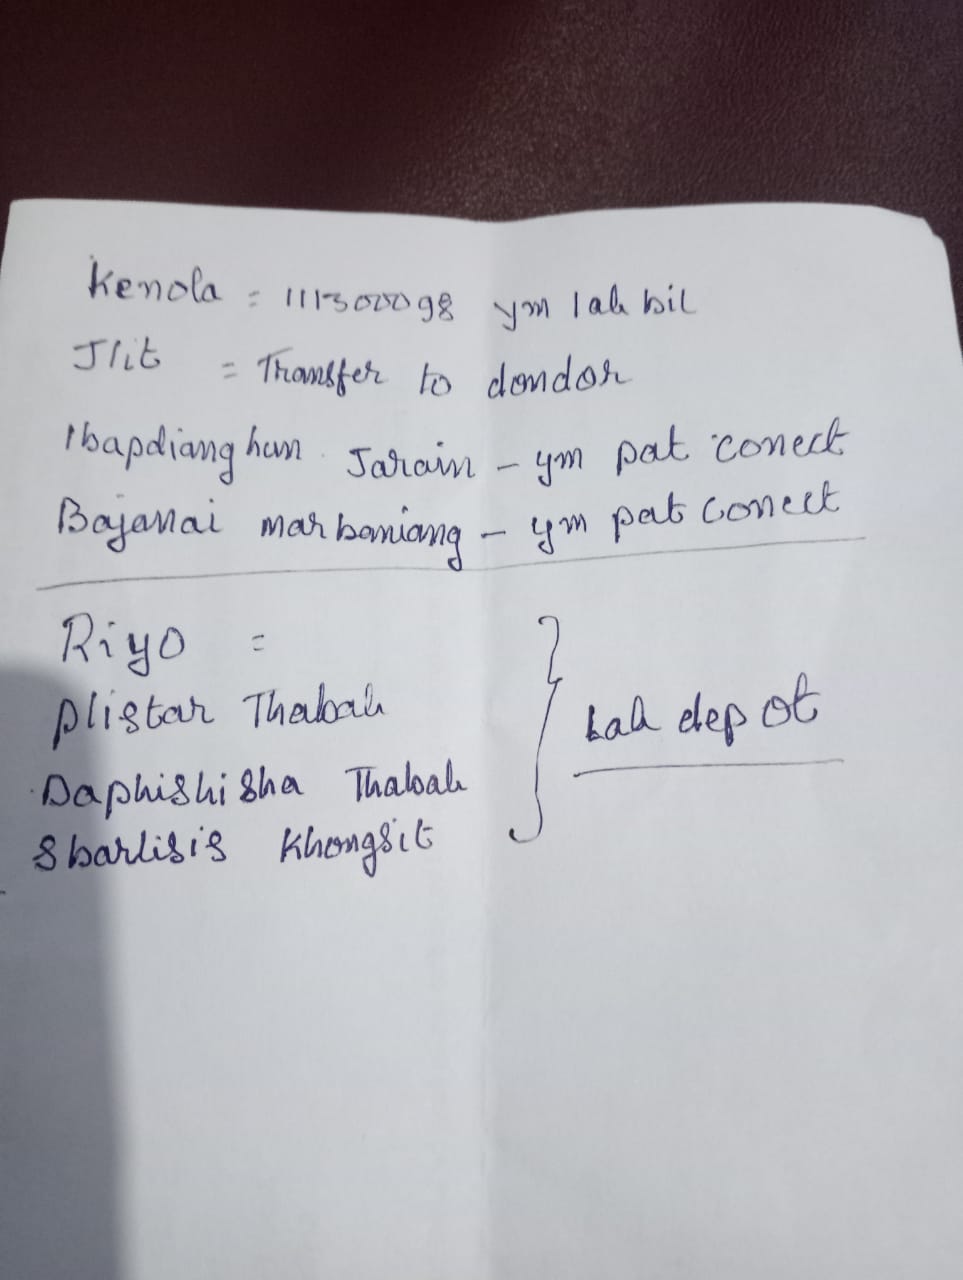 Kenola = 111300098 ym lah bil
Jlit = Transfer to dondor
Ibapdianghun Jarain - ym pat conect
Bajanai marbaniang - ym pat conect
Riyo =
Plistar Thabah
Daphishisha Thabah
Sbarlisis Khongsit
Lah depot